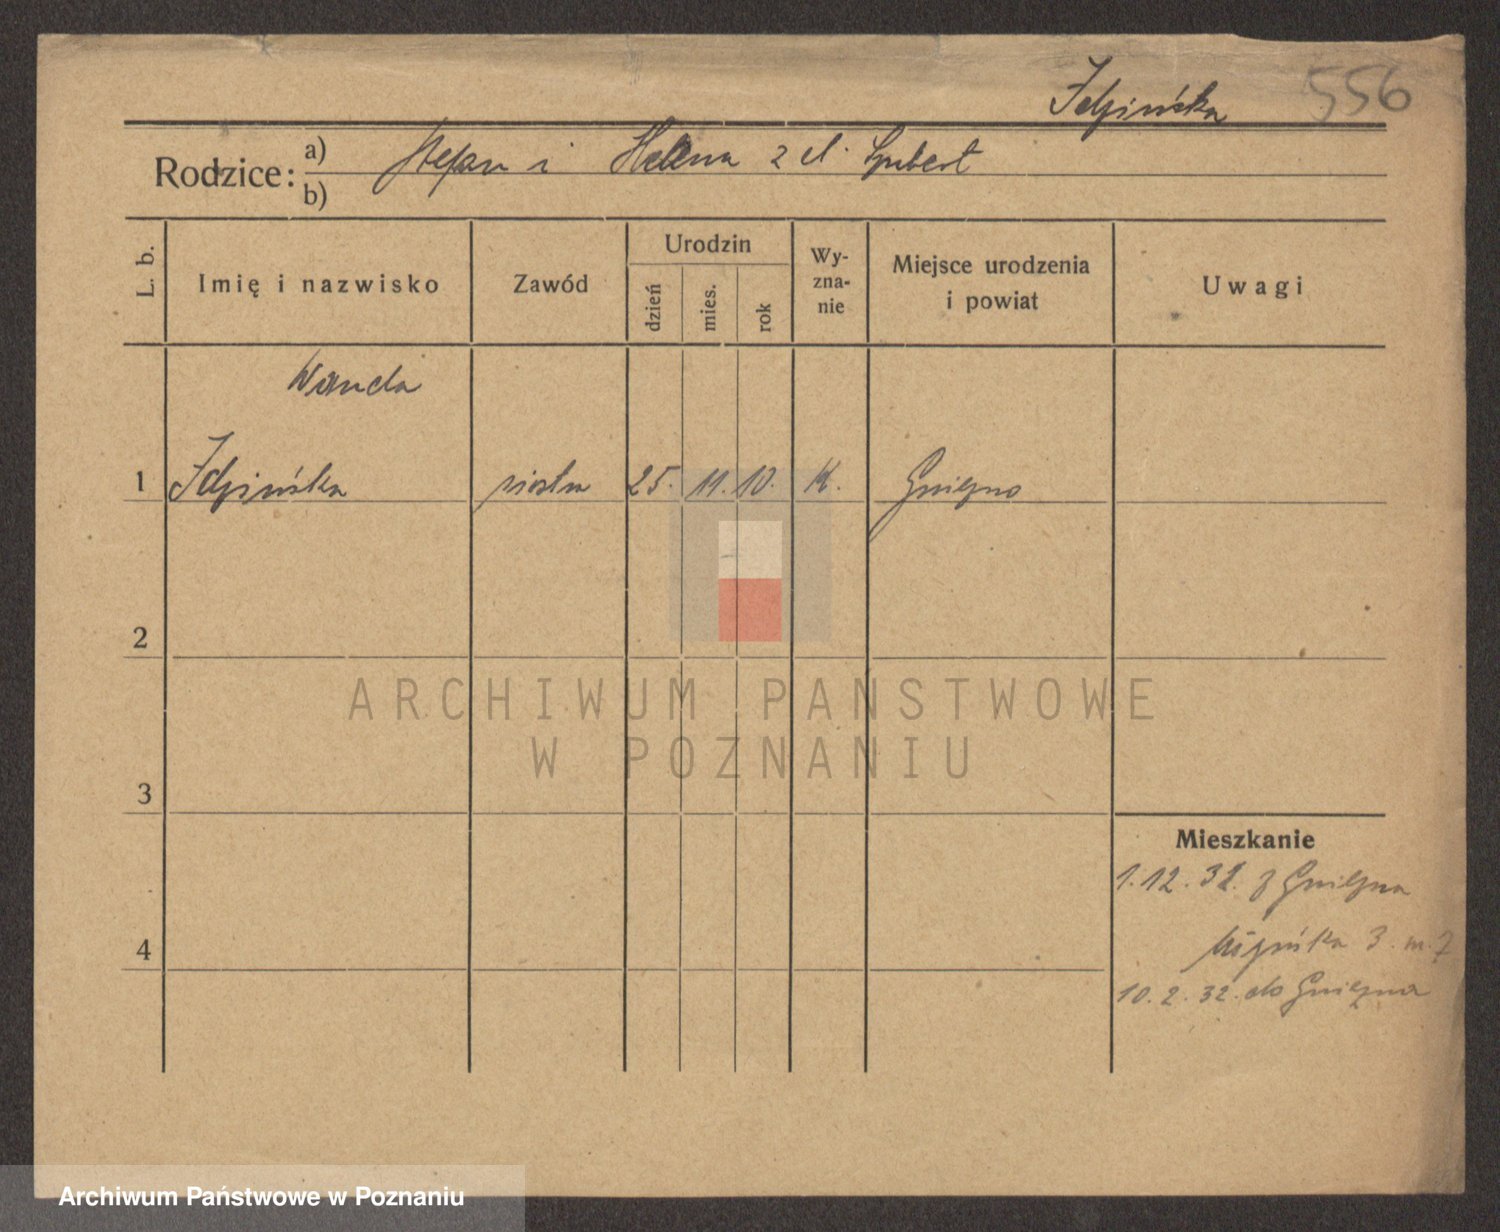 556
Idzińska
Rodzice:
a) Stefan i Helena z d.
b)
L. b.
Imię i nazwisko
Zawód
Urodzin
dzień
mies.
rok
Wy-
zna-
nie
Miejsce urodzenia
i powiat
Uwagi
Wanda
1 Idzińska siostra 25. 11. 10. K. Gniezno
2
3
4
Mieszkanie
1.12.31. z Gniezna
3. m. 7
10.2.32. do Gniezna
ARCHIWUM PANSTWOWE
W POZNANIU
Archiwum Państwowe w Poznaniu